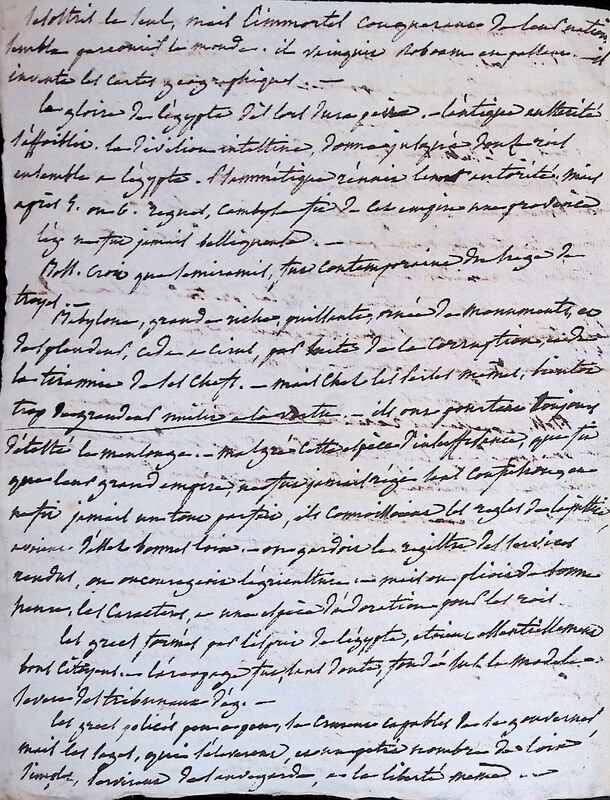 Sesostris le seul, mais l'immortel conquerant de leur nation,
semble parcourir le monde. il vainquit Roboam en Palest. - il
inventa les cartes geographiques. -
la gloire de l'égypte dès lors dura peu. - l'antique authorité
s'affoiblit. la division intestine, donna jusqu'à douse rois
ensemble a l'égypte. Psammétique réunit leur autorité. mais
après 5. ou 6. regnes, cambyse fit de cet empire une province
l'ég. ne fut jamais belliqueuse. -
Roll. croit que semiramis, fut contemporaine du siege de
troyes. -
Babylone, grande riche, puissante, ornée de monuments, et
de splendeur, cede a cirus, par suite de la corruption, et de
la tirannie de ses chefs. - mais chez les perses memes, bientot
trop de grandeur nuisit a la vertu. - ils ont pourtant toujours
détesté le mensonge. - malgré cette espèce d'insuffisance, qui fit
que leur grand empire, ne fut jamais régi sans confusion, et
ne fut jamais un tout parfait, ils connoissoient les regles de la justice
avoient d'assez bonnes loix. - on gardoit le registre des services
rendus, on encourageoit l'agriculture. - mais on plioit de bonne
heure, les caracteres, a une espèce d'adoration pour les rois.
les grecs formés par l'esprit de l'égypte, etoient essentiellement
bons citoyens. - l'aréopage fut, sans doute, fondé sur le modele
severe des tribunaux d'ég. -
les grecs policés peu a peu, se crurent capables de se gouverner,
mais les sages, qui s'éleverent, et un petit nombre de loix
simples, servirent de sauvegarde, a la liberté meme -